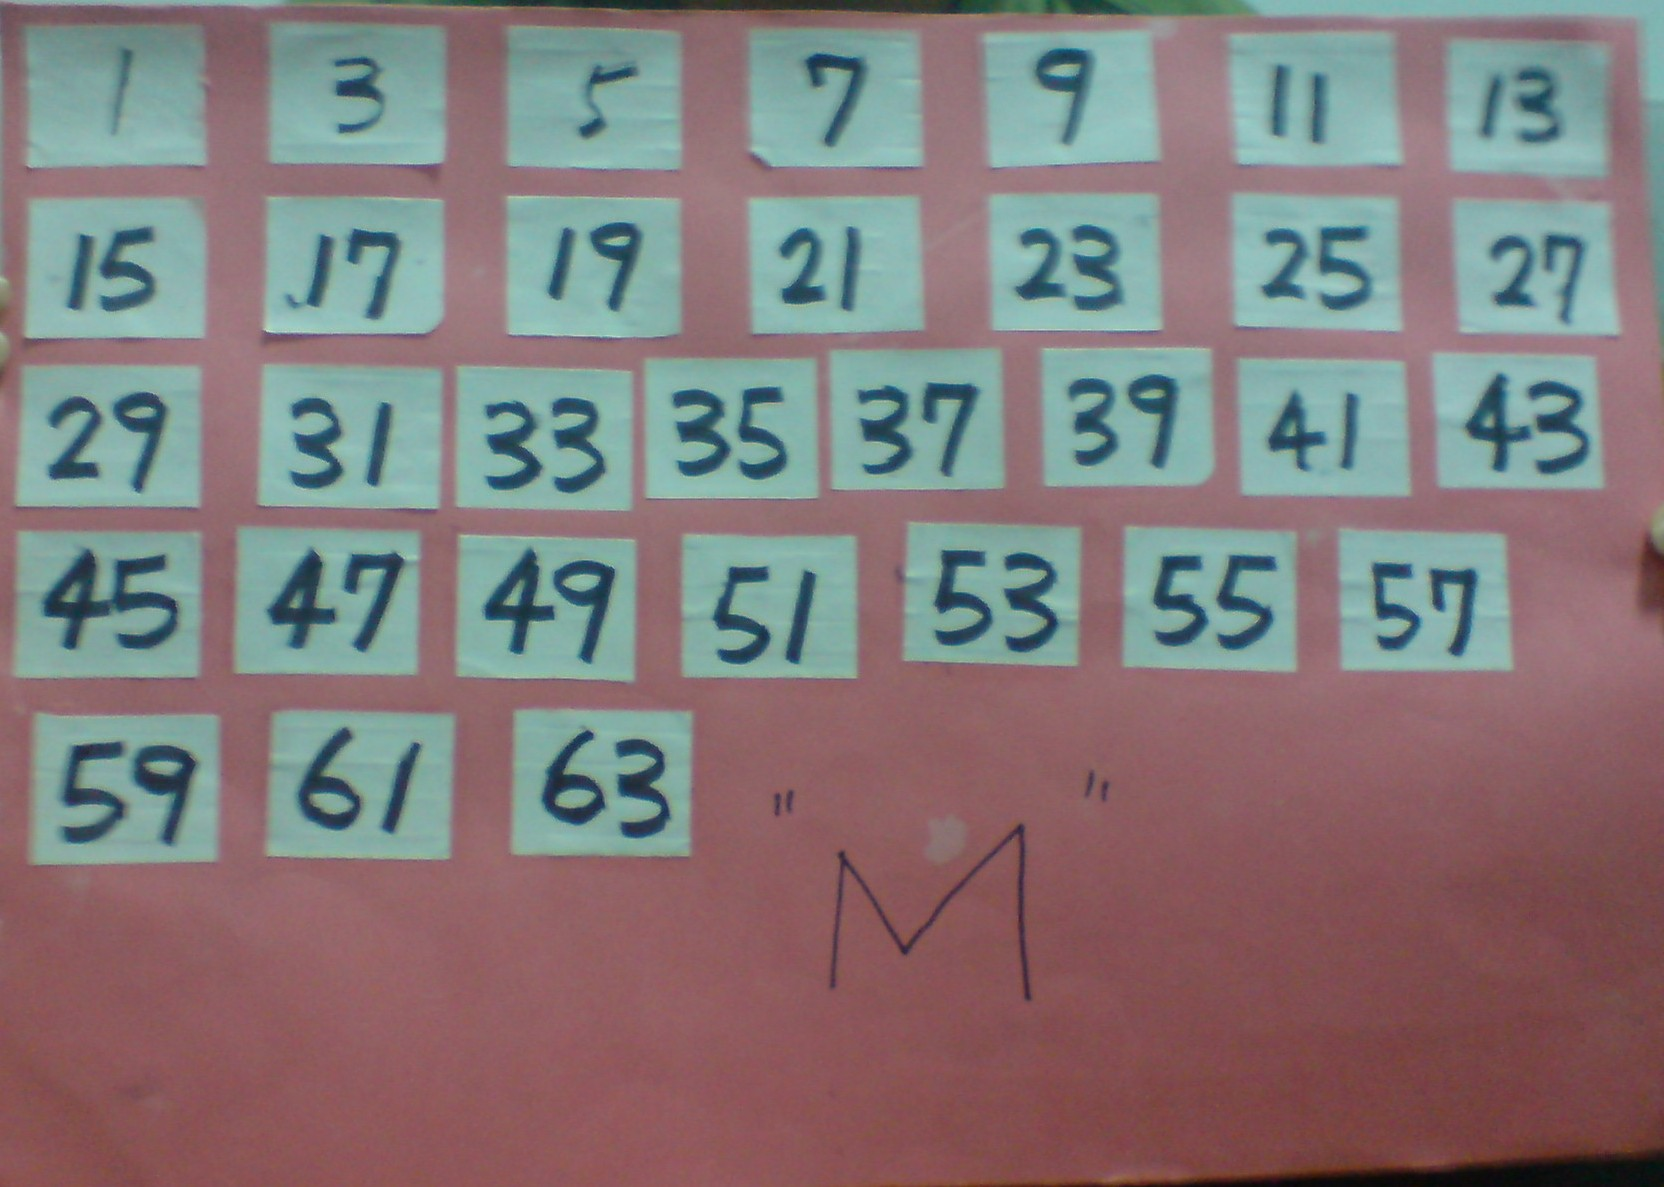 1 3 5 7 9 11 13
15 17 19 21 23 25 27
29 31 33 35 37 39 41 43
45 47 49 51 53 55 57
59 61 63 "M"